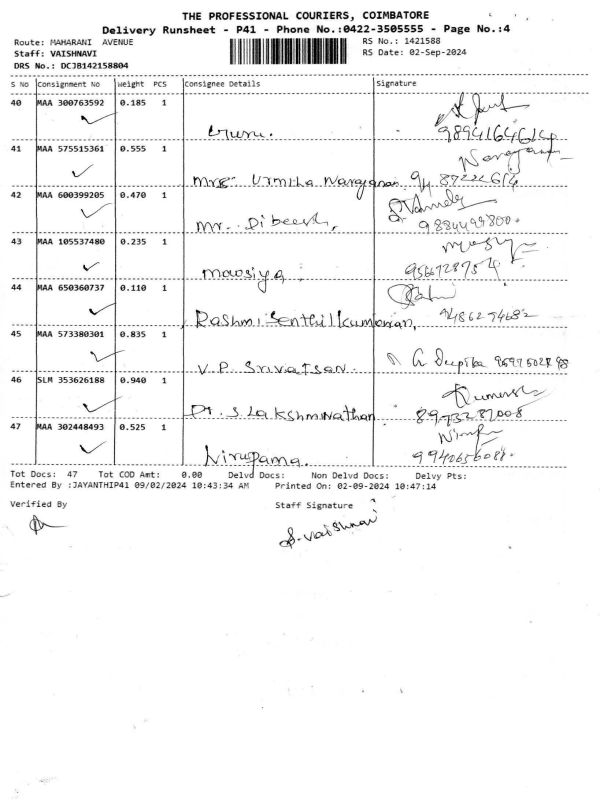 THE PROFESSIONAL COURIERS, COIMBATORE
Delivery Runsheet - P41 - Phone No.:0422-3505555 - Page No.:4
Route: MAHARANI AVENUE RS No.: 1421588
Staff: VAISHNAVI RS Date: 02-Sep-2024
DRS No.: DCJB142158804
S No Consignment No Weight PCS Consignee Details Signature
40 MAA 300763592 0.185 1
Guru. 9894164614
41 MAA 575515361 0.555 1 Narayanan
Mrs. Urmila Narayanan
42 MAA 600399205 0.470 1
Mr. Dibeesh,
43 MAA 105537480 0.235 1
Mowsiya.
44 MAA 650360737 0.110 1
Rashmi Senthilkumaran, 9486294682
45 MAA 573380301 0.835 1
V.P. Srivatsan. Deepika
46 SLM 353626188 0.940 1
Dr. S. Lakshminathan
47 MAA 302448493 0.525 1
Nirupama. 9942656088.
Tot Docs: 47 Tot COD Amt: 0.00 Delvd Docs: Non Delvd Docs: Delvy Pts:
Entered By :JAYANTHIP41 09/02/2024 10:43:34 AM Printed On: 02-09-2024 10:47:14
Verified By Staff Signature
S. Vaishnavi